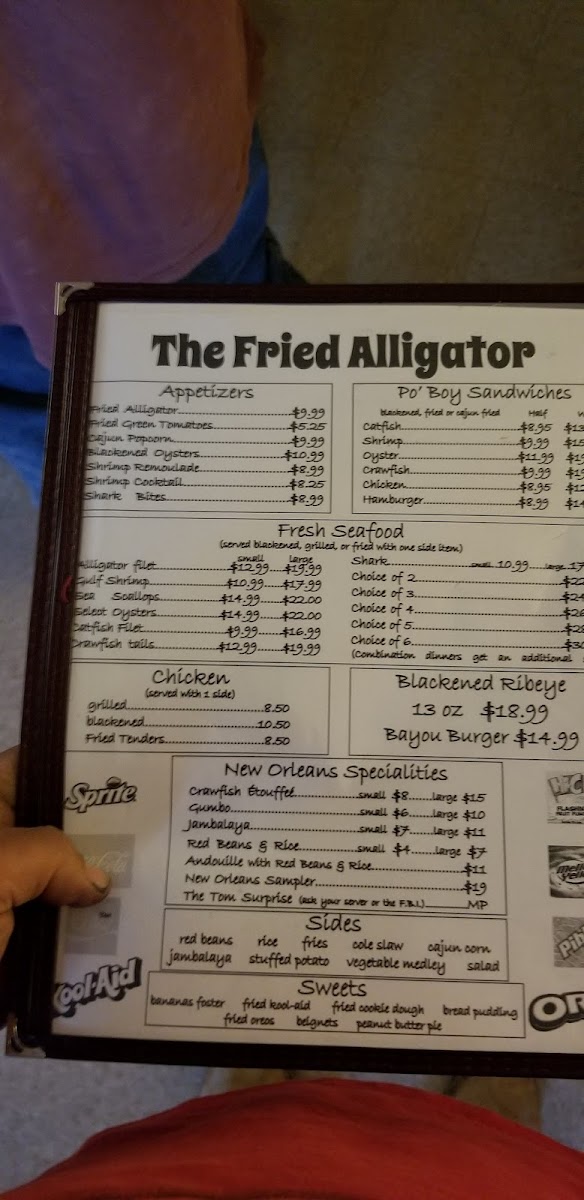 The Fried Alligator
Appetizers
Fried Alligator $9.99
Fried Green Tomatoes $5.25
Cajun Popcorn $9.99
Blackened Oysters $10.99
Shrimp Remoulade $8.99
Shrimp Cocktail $8.25
Shark Bites $8.99
Po' Boy Sandwiches
blackened, fried or cajun fried Half
Catfish $8.95
Shrimp $9.99
Oyster $11.99
Crawfish $9.99
Chicken $8.95
Hamburger $8.99
Fresh Seafood
(served blackened, grilled, or fried with one side item)
small large
Alligator filet $12.99 $19.99
Gulf Shrimp $10.99 $17.99
Sea Scallops $14.99 $22.00
Select Oysters $14.99 $22.00
Catfish Filet $9.99 $16.99
Crawfish tails $12.99 $19.99
Shark small 10.99 large 17
Choice of 2 $22
Choice of 3 $24
Choice of 4 $26
Choice of 5 $28
Choice of 6 $30
(Combination dinners get an additional
Chicken
(served with 1 side)
grilled 8.50
blackened 10.50
Fried Tenders 8.50
Blackened Ribeye
13 oz $18.99
Bayou Burger $14.99
New Orleans Specialities
Crawfish Étouffeé small $8 large $15
Gumbo small $6 large $10
Jambalaya small $7 large $11
Red Beans & Rice small $4 large $7
Andouille with Red Beans & Rice $11
New Orleans Sampler $19
The Tom Surprise (ask your server or the F.B.I.) MP
Sides
red beans rice fries cole slaw cajun corn
jambalaya stuffed potato vegetable medley salad
Sweets
bananas foster fried kool-aid fried cookie dough bread pudding
fried oreos beignets peanut butter pie
Sprite
Kool-Aid